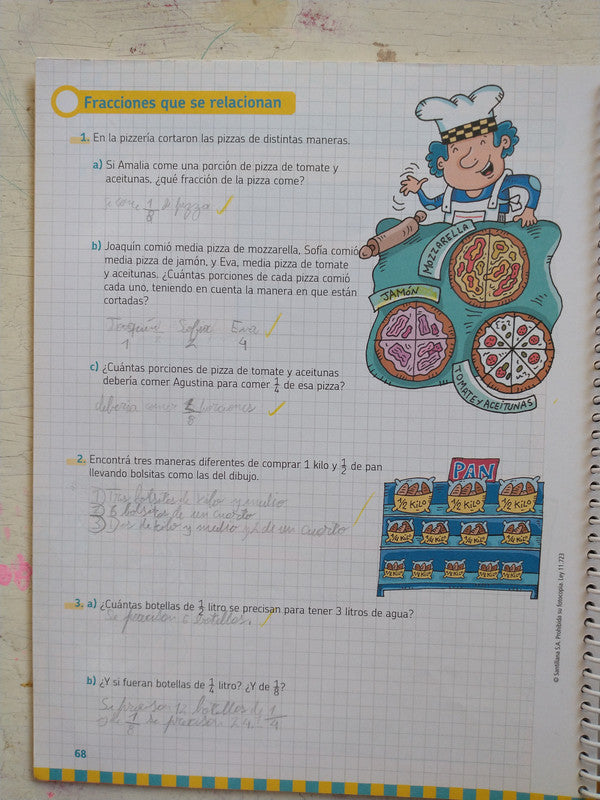 Fracciones que se relacionan
1. En la pizzería cortaron las pizzas de distintas maneras.
a) Si Amalia come una porción de pizza de tomate y
aceitunas, ¿qué fracción de la pizza come?
Se come 1/8 de pizza
b) Joaquín comió media pizza de mozzarella, Sofía comió
media pizza de jamón, y Eva, media pizza de tomate
y aceitunas. ¿Cuántas porciones de cada pizza comió
cada uno, teniendo en cuenta la manera en que están
cortadas?
Joaquín Sofía Eva
1 2 4
MOZZARELLA
JAMÓN
TOMATE Y ACEITUNAS
c) ¿Cuántas porciones de pizza de tomate y aceitunas
debería comer Agustina para comer 1/4 de esa pizza?
debería comer porciones
8
2. Encontrá tres maneras diferentes de comprar 1 kilo y 1/2 de pan
llevando bolsitas como las del dibujo.
1) Tres bolsitas de kilo y medio
2) 6 bolsitas de un cuarto
3) Dos de kilo y medio y 2 de un cuarto
PAN
1/2 KILO 1/2 KILO 1/2 KILO
1/4 KILO 1/4 KILO 1/4 KILO 1/4 KILO
3. a) ¿Cuántas botellas de 1/2 litro se precisan para tener 3 litros de agua?
Se precisan 6 botellas.
b) ¿Y si fueran botellas de 1/4 litro? ¿Y de 1/8?
Se precisan 12 botellas de 1/4
y de 1/8 se precisan 24.
68
© Santillana S.A. Prohibida su fotocopia. Ley 11.723